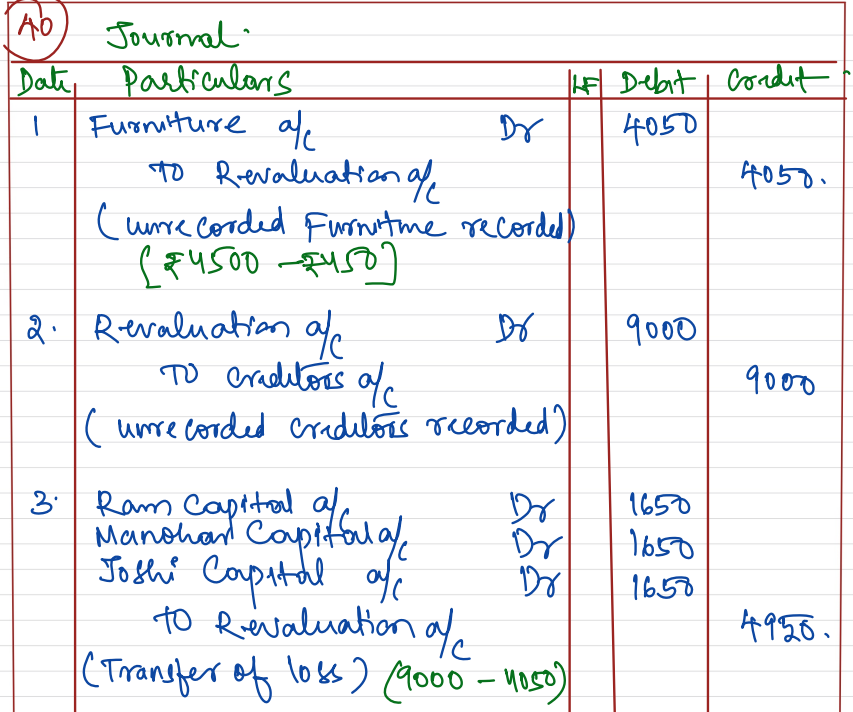 40
Journal.
Date Particulars LF Debit Credit
1 Furniture a/c Dr 4050
To Revaluation a/c 4050.
(unrecorded Furniture recorded)
[₹4500 - ₹450]
2. Revaluation a/c Dr 9000
To Creditors a/c 9000
(unrecorded creditors recorded)
3. Ram Capital a/c Dr 1650
Manohar Capital a/c Dr 1650
Joshi Capital a/c Dr 1650
To Revaluation a/c 4950.
(Transfer of loss) (9000 - 4050)